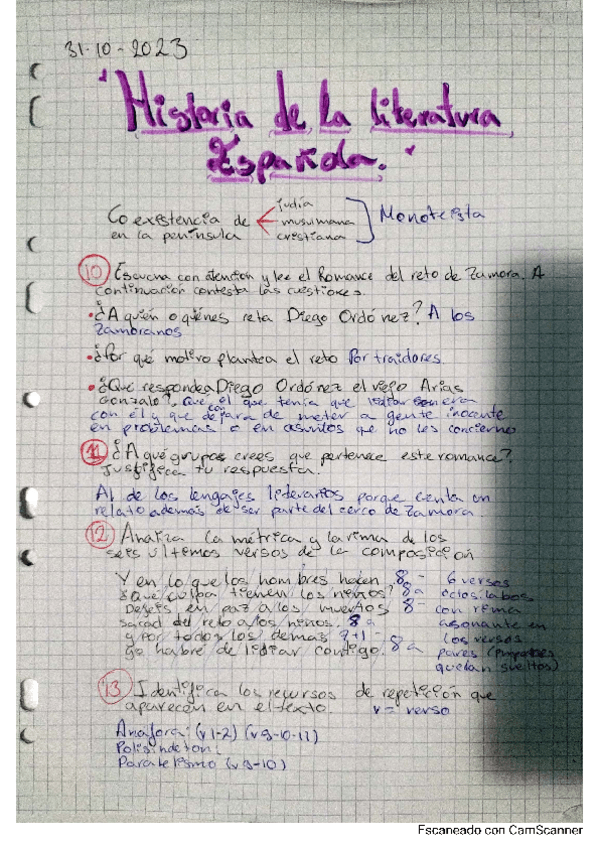 31-10-2023
"Historia de la literatura
Española."
Coexistencia de
en la península
judia
musulmana
cristiana
Monoteista
10 Escucha con atención y lee el Romance del reto de Zamora. A
continuación contesta las cuestiones.
• ¿A quién o quiénes reta Diego Ordónez? A los
Zambranos
• ¿Por qué motivo plantea el reto Por traidores.
• ¿Qué responde a Diego Ordónez el viejo Arias
Gonzalo? Que el que tenía que lidiar son era
con él y que dejara de meter a gente inocente
en problemas o en asuntos que no les concierne
11 ¿A qué grupos crees que pertenece este romance?
Justifica tu respuesta.
Al de los lengajes liderarios porque cuenta un
relato además de ser parte del cerco de Zamora
12 Analiza la métrica y la rima de los
seis ultimos versos de la composición
Y en lo que los hombres hacen 8a - 6 versos
¿Que culpa tienen los niños? 8a octosilabos
Dejeis en paz a los muertos 8 - con rima
sacad del reto a los niños. 8a asonante en
y por todos los demás 7+1 - los versos
yo habré de lidiar contigo. 8a pares
quedan sueltos)
13 Identifica los recursos de repetición que
aparecen en el texto. v = verso
Anáfora: (v1-2) (v9-10-11)
Polisindeton:
Paralelismo (v9-10)
Escaneado con CamScanner